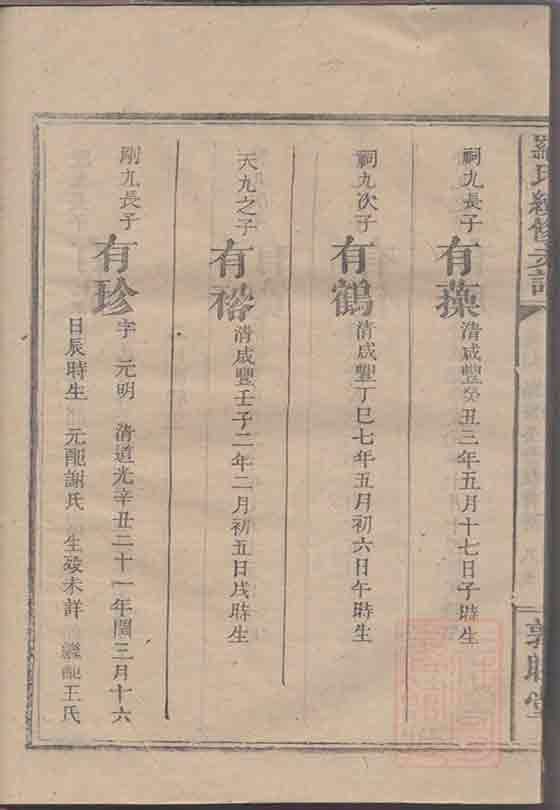 羅氏續修支譜
敦睦堂
祠九長子 有藻 清咸豐癸丑三年五月十七日子時生
祠九次子 有鶴 清咸豐丁巳七年五月初六日午時生
天九之子 有裕 清咸豐壬子二年二月初五日戌時生
剛九長子 有珍 字 元明 清道光辛丑二十一年閏三月十六
日辰時生 元配謝氏 生歿未詳 繼配王氏